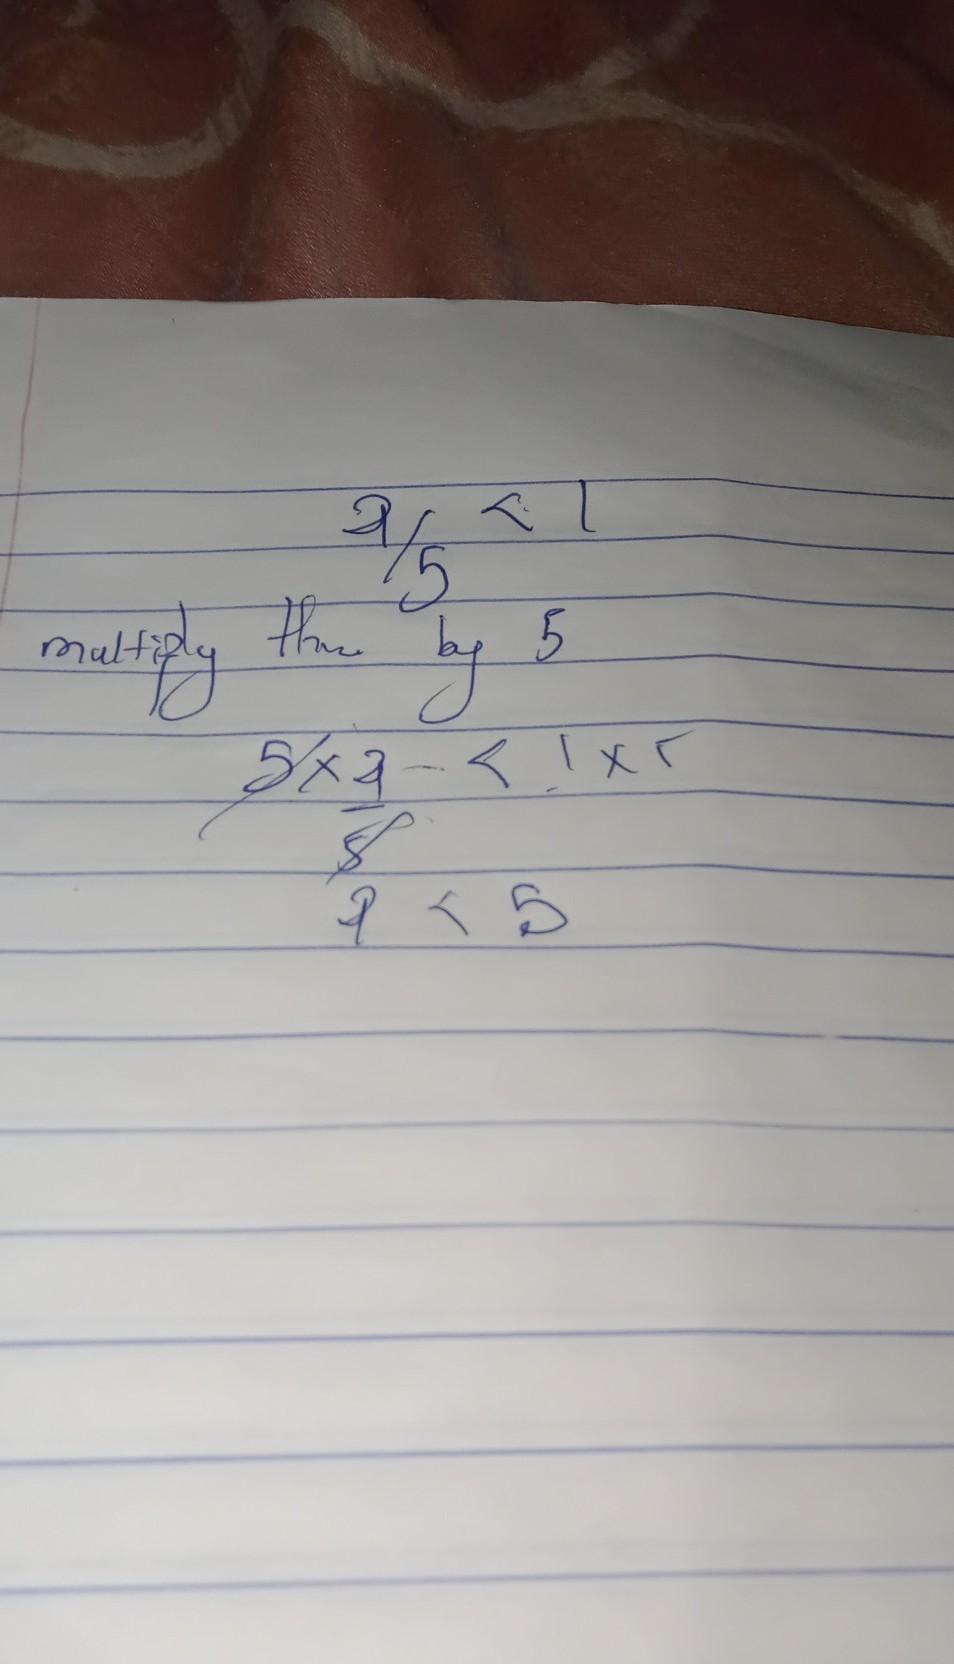 a/5 < 1
multiply thru by 5
5 × a/5 < 1 × 5
a < 5